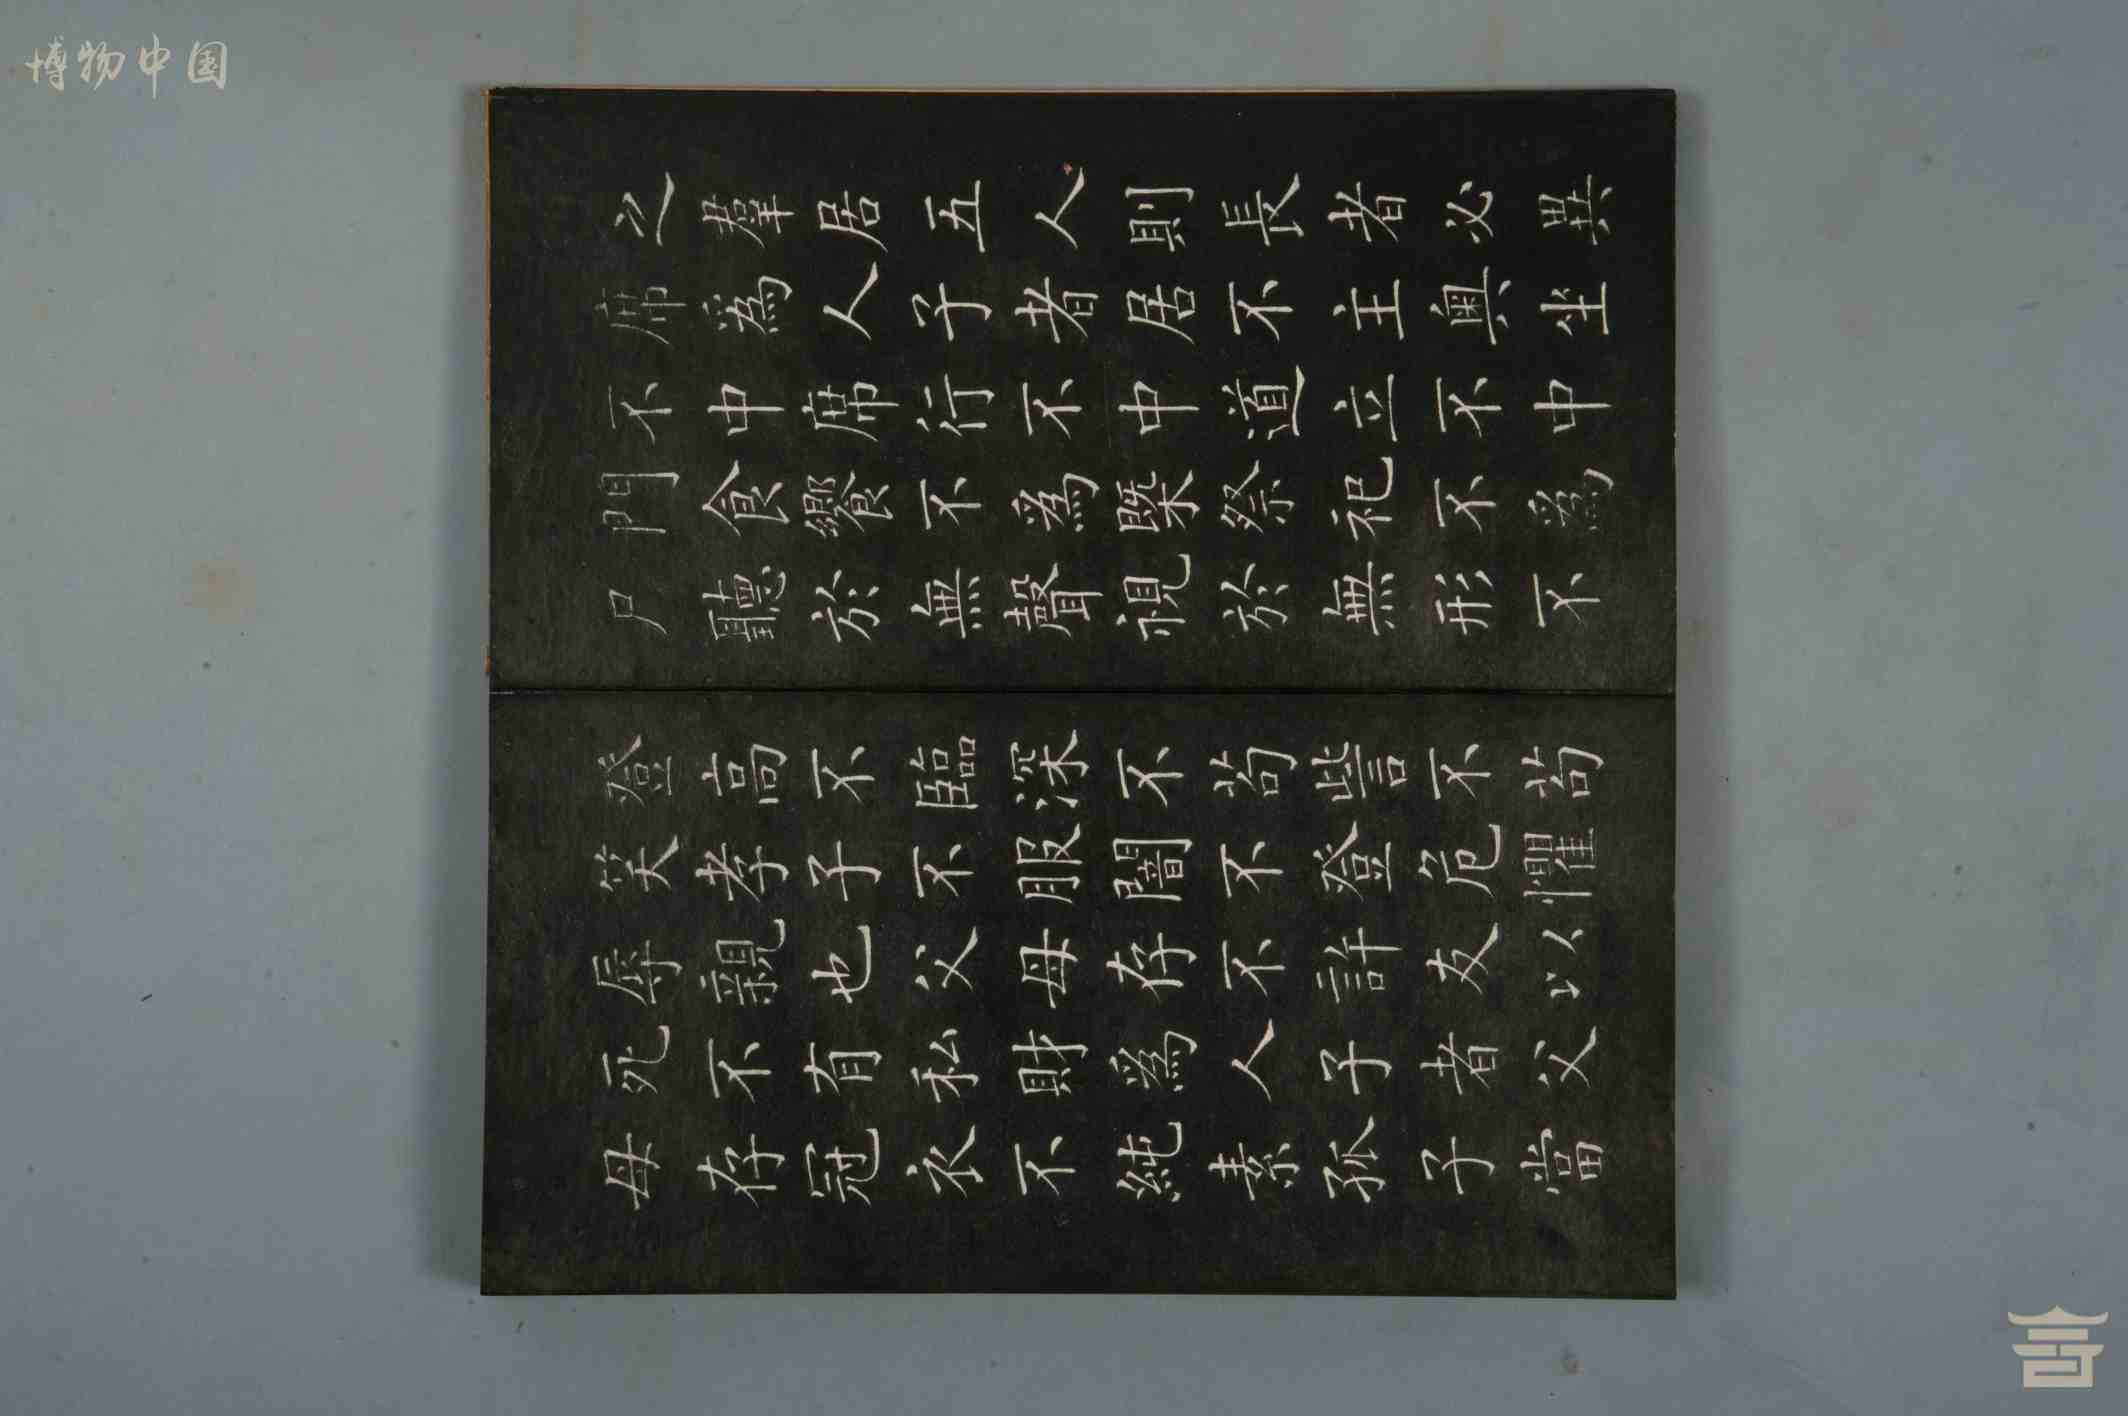 博物中国
之群居五人則長者必異
席為人子者居不主奧坐
不中席行不中道立不中
門食饗不為槩祭祀不為
尸聽於無聲視於無形不
登高不臨深不苟訾不苟
笑孝子不服闇不登危懼
辱親也父母存不許友以
死不有私財為人子者父
母存冠衣不純素孤子當